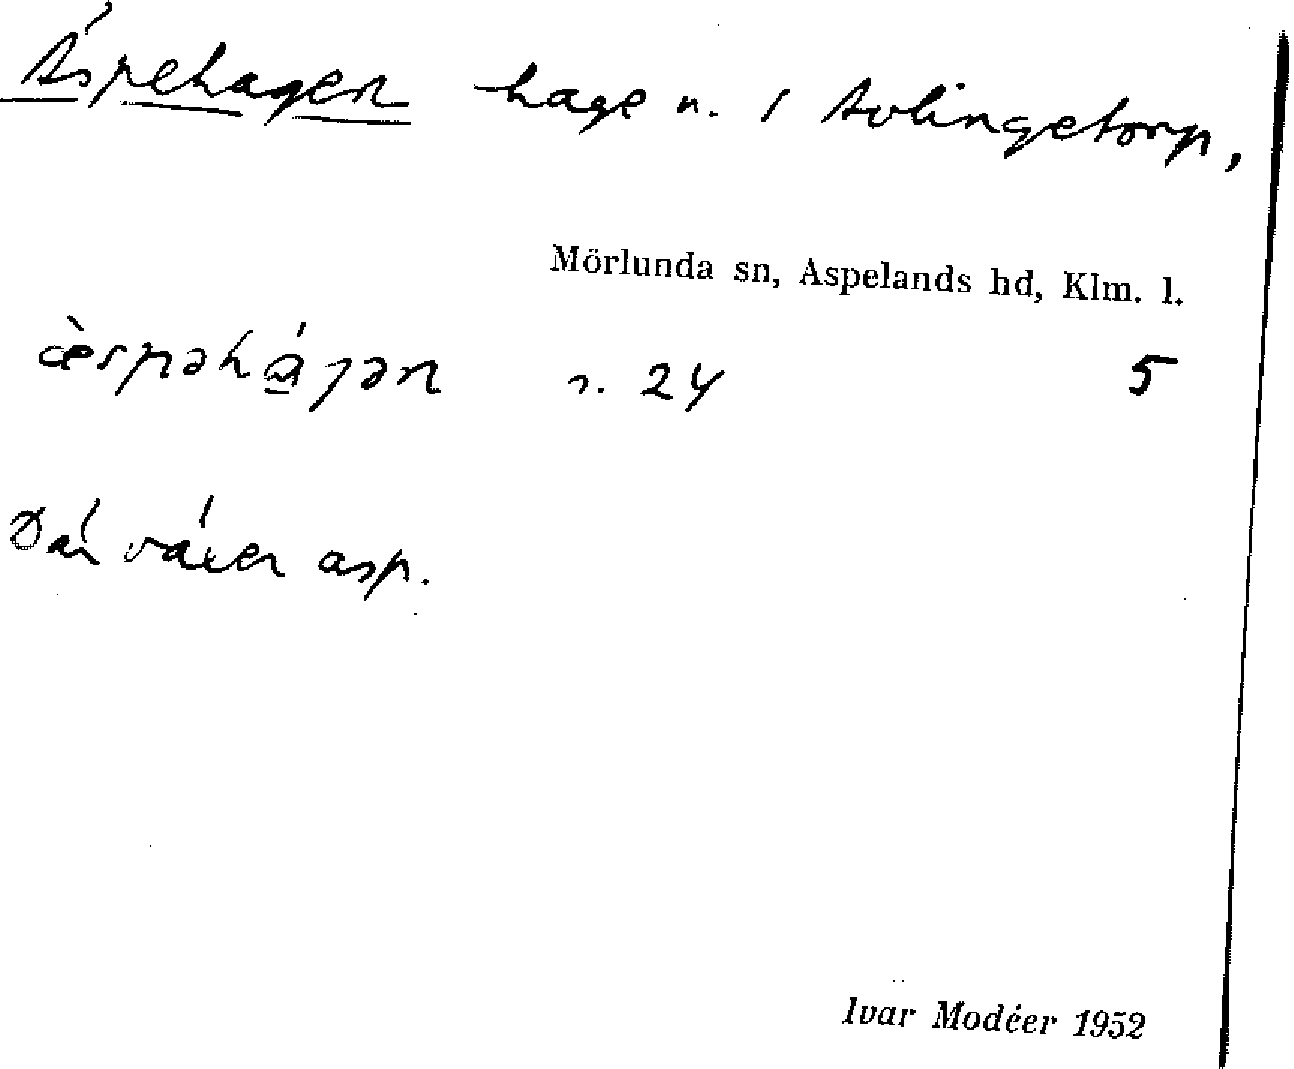 Äspehagen hage n. i Avlingetorp,
Mörlunda sn, Aspelands hd, Klm. l.
æ̀spəhágən s. 24 5
Där växer asp.
Ivar Modéer 1952